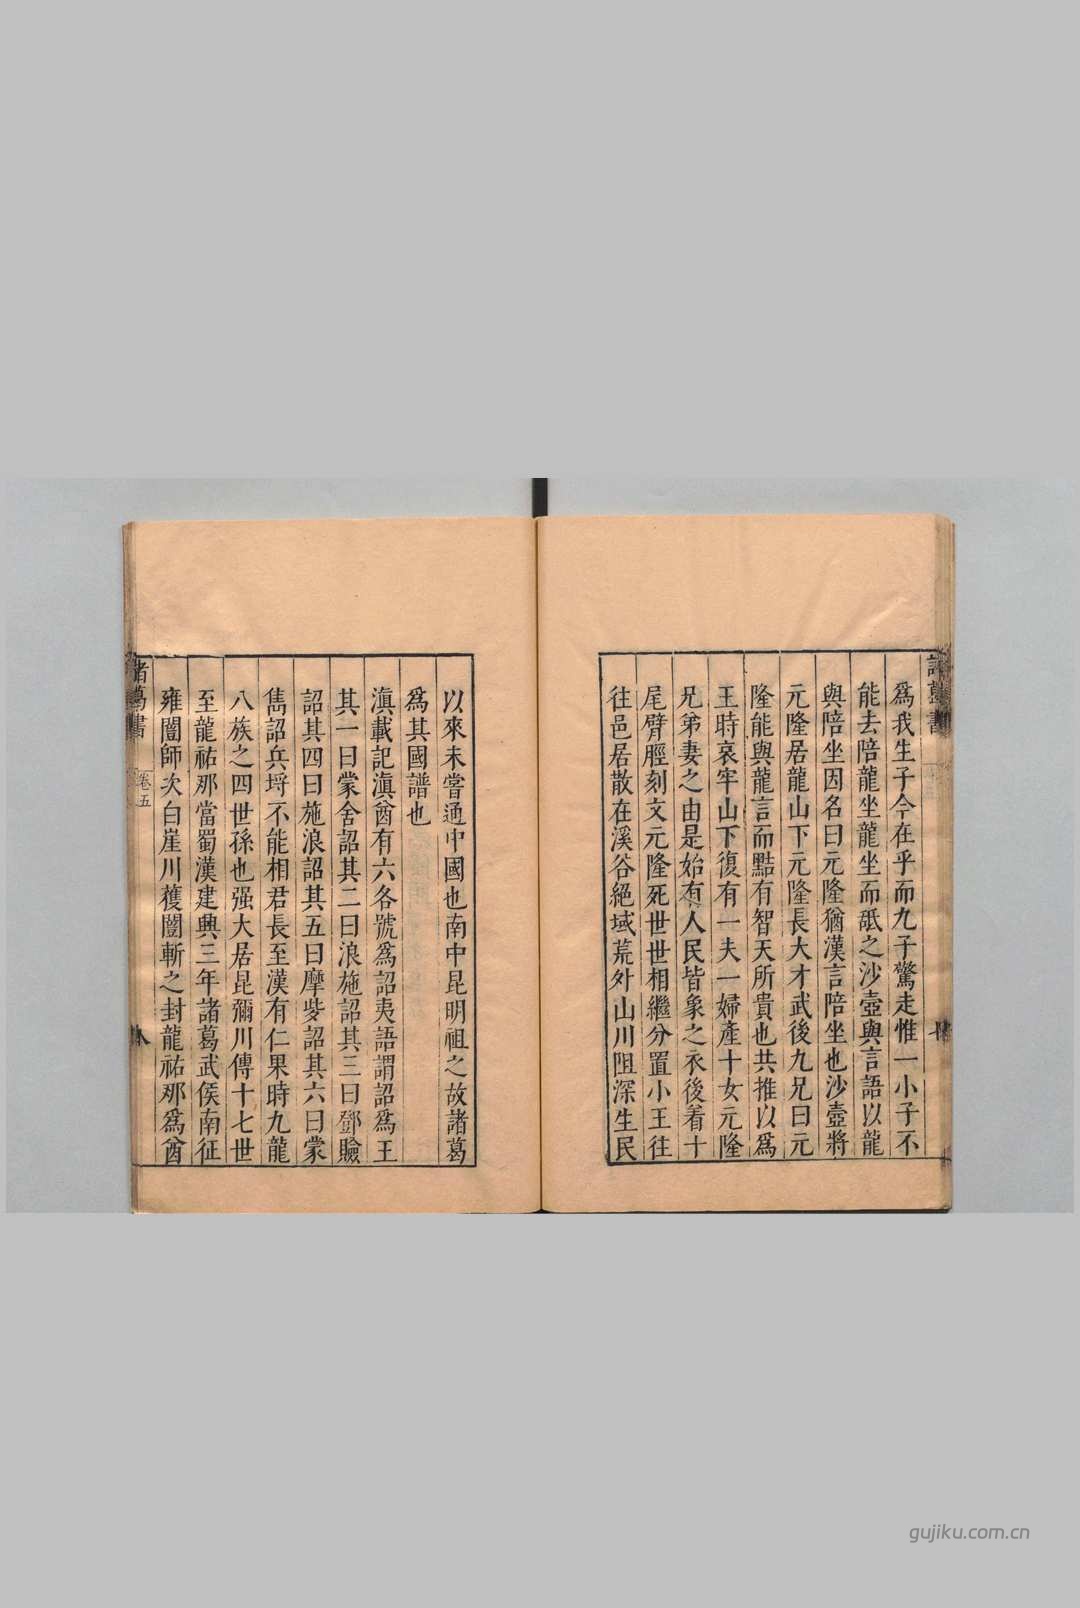 諸葛書
爲我生子今在乎而九子驚走惟一小子不
能去陪龍坐龍坐而䑛之沙壺與言語以龍
與陪坐因名曰元隆猶漢言陪坐也沙壺將
元隆居龍山下元隆長大才武後九兄曰元
隆能與龍言而黠有智天所貴也共推以爲
王時哀牢山下復有一夫一婦產十女元隆
兄弟妻之由是始有人民皆象之衣後着十
尾臂脛刻文元隆死世世相繼分置小王往
往邑居散在溪谷絕域荒外山川阻深生民
以來未嘗通中國也南中昆明祖之故諸葛
爲其國譜也
滇載記滇酋有六各號爲詔夷語謂詔爲王
其一曰蒙舍詔其二曰浪施詔其三曰鄧賧
詔其四曰施浪詔其五曰摩些詔其六曰蒙
雋詔兵埒不能相君長至漢有仁果時九龍
八族之四世孫也强大居昆彌川傳十七世
至龍祐那當蜀漢建興三年諸葛武侯南征
雍闓師次白崖川獲闓斬之封龍祐那爲酋
諸葛書
卷五
gujiku.com.cn